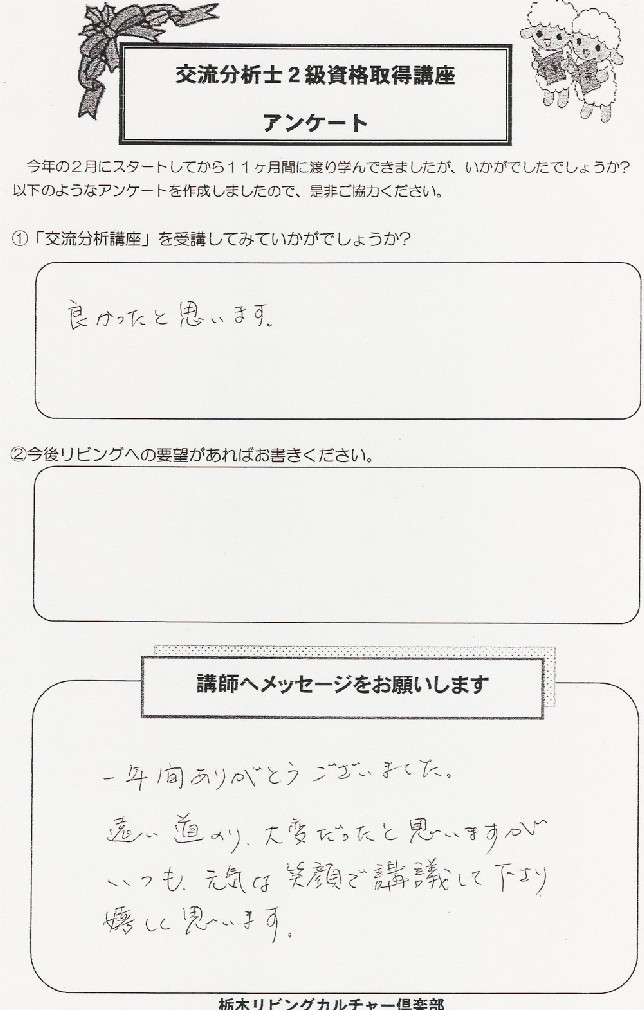 交流分析士２級資格取得講座
アンケート
今年の２月にスタートしてから１１ヶ月間に渡り学んできましたが、いかがでしたでしょうか?
以下のようなアンケートを作成しましたので、是非ご協力ください。
①「交流分析講座」を受講してみていかがでしょうか?
良かったと思います。
②今後リビングへの要望があればお書きください。
講師へメッセージをお願いします
一年間ありがとうございました。
遠い道のり、大変だったと思いますが
いつも、元気な笑顔で講議して下より
嬉しく思います。
栃木リビングカルチャー倶楽部